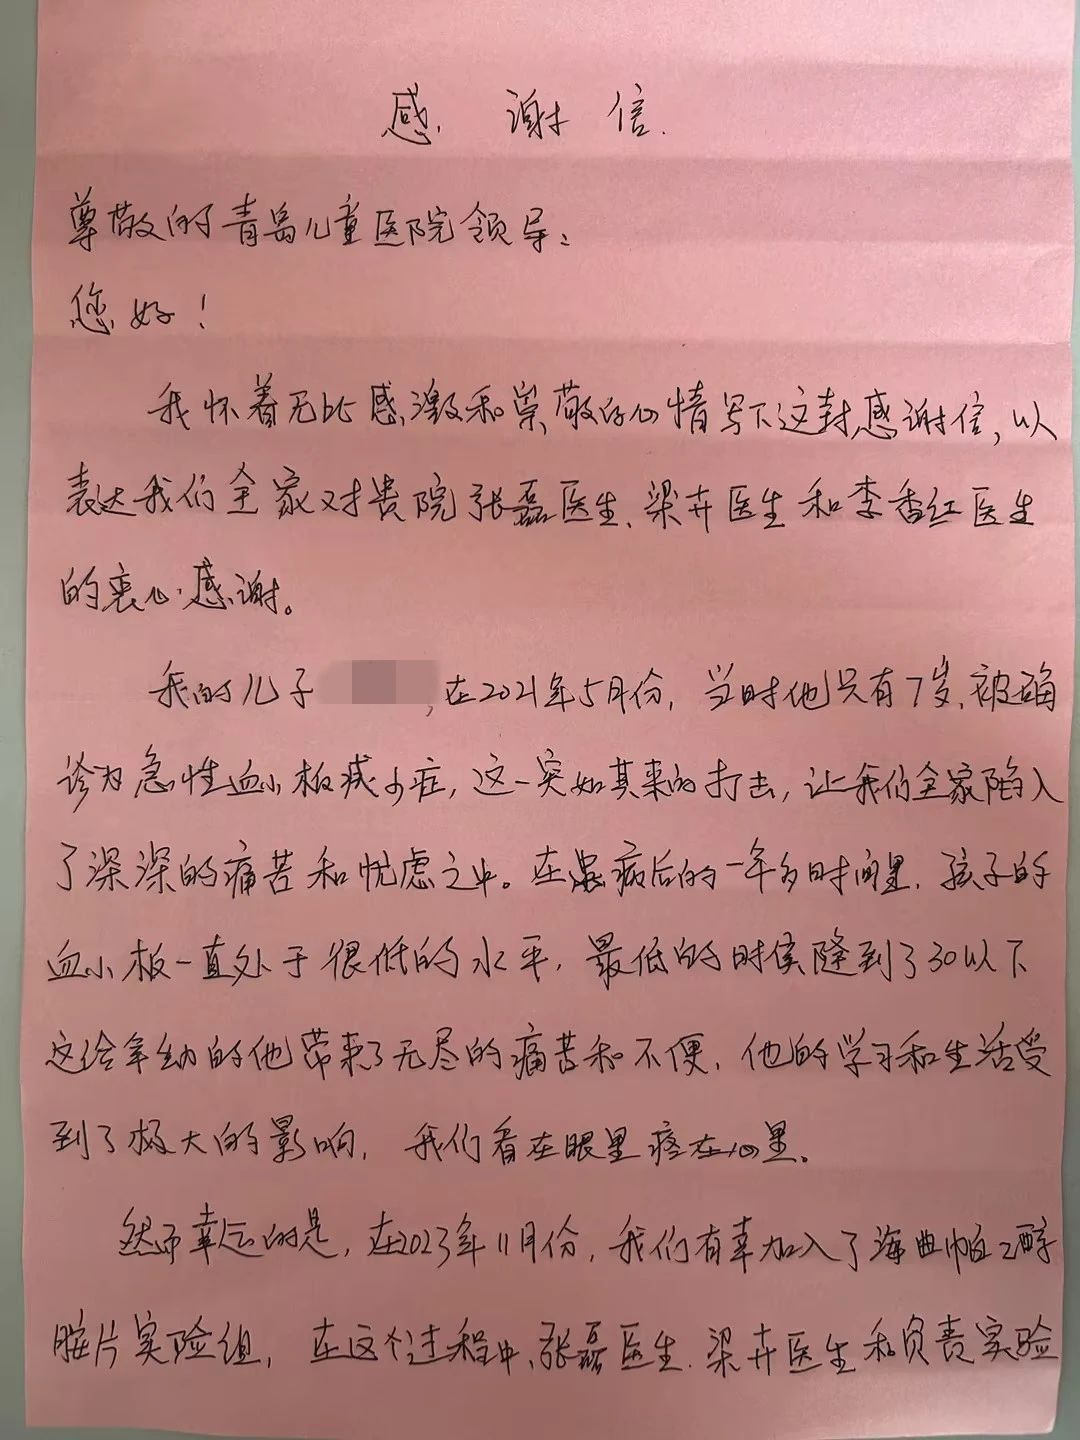 感谢信.
尊敬的青岛儿童医院领导:
您好!
我怀着无比感激和崇敬的心情写下这封感谢信,以
表达我们全家对贵院张磊医生、梁卉医生和李香红医生
的衷心感谢。
我的儿子 ,在2021年5月份,当时他只有7岁,被确
诊为急性血小板减少症,这一突如其来的打击,让我们全家陷入
了深深的痛苦和忧虑之中。在患病后的一年多时间里,孩子的
血小板一直处于很低的水平,最低的时侯降到了30以下
这给年幼的他带来了无尽的痛苦和不便,他的学习和生活受
到了极大的影响,我们看在眼里疼在心里。
然而幸运的是,在2023年11月份,我们有幸加入了海曲帕乙醇
胺片实验组,在这个过程中,张磊医生、梁卉医生和负责实验